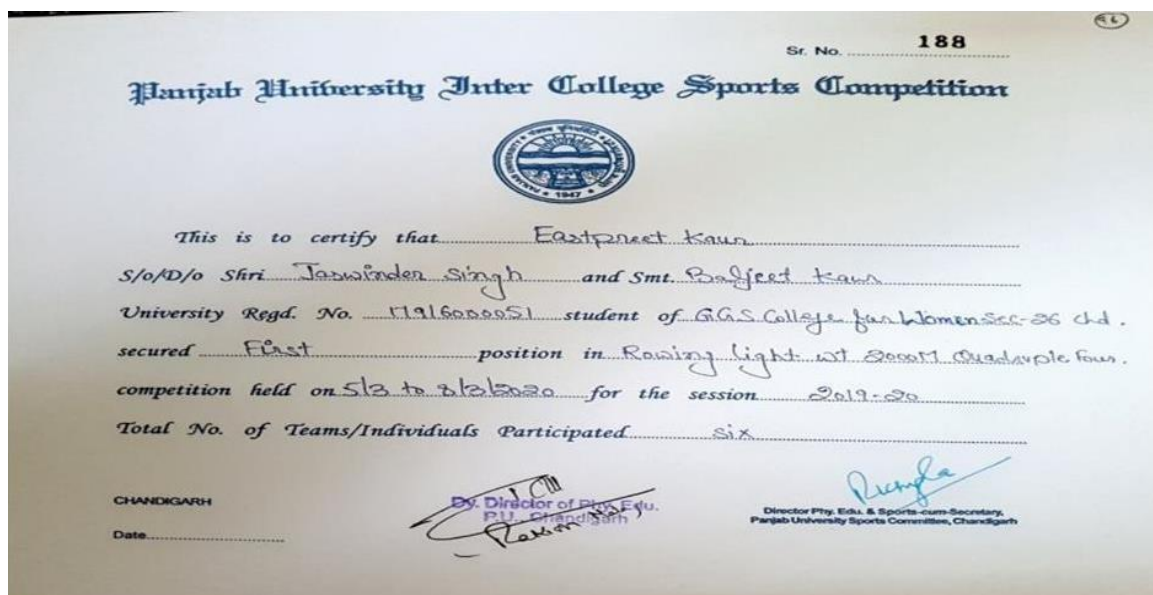 96
Sr. No. 188
Panjab University Inter College Sports Competition
PANJAB UNIVERSITY
1947
This is to certify that Eastpreet Kaur
S/o/D/o Shri Jaswinder Singh and Smt. Baljeet Kaur
University Regd. No. 17916000051 student of G.G.S College for Women Sec-26 Chd.
secured First position in Rowing light wt 2000M Quadruple Four.
competition held on 5/3 to 8/3/2020 for the session 2019-20
Total No. of Teams/Individuals Participated six
CHANDIGARH
Date
Dy. Director of Phy. Edu.
P.U., Chandigarh
Director Phy. Edu. & Sports-cum-Secretary,
Panjab University Sports Committee, Chandigarh